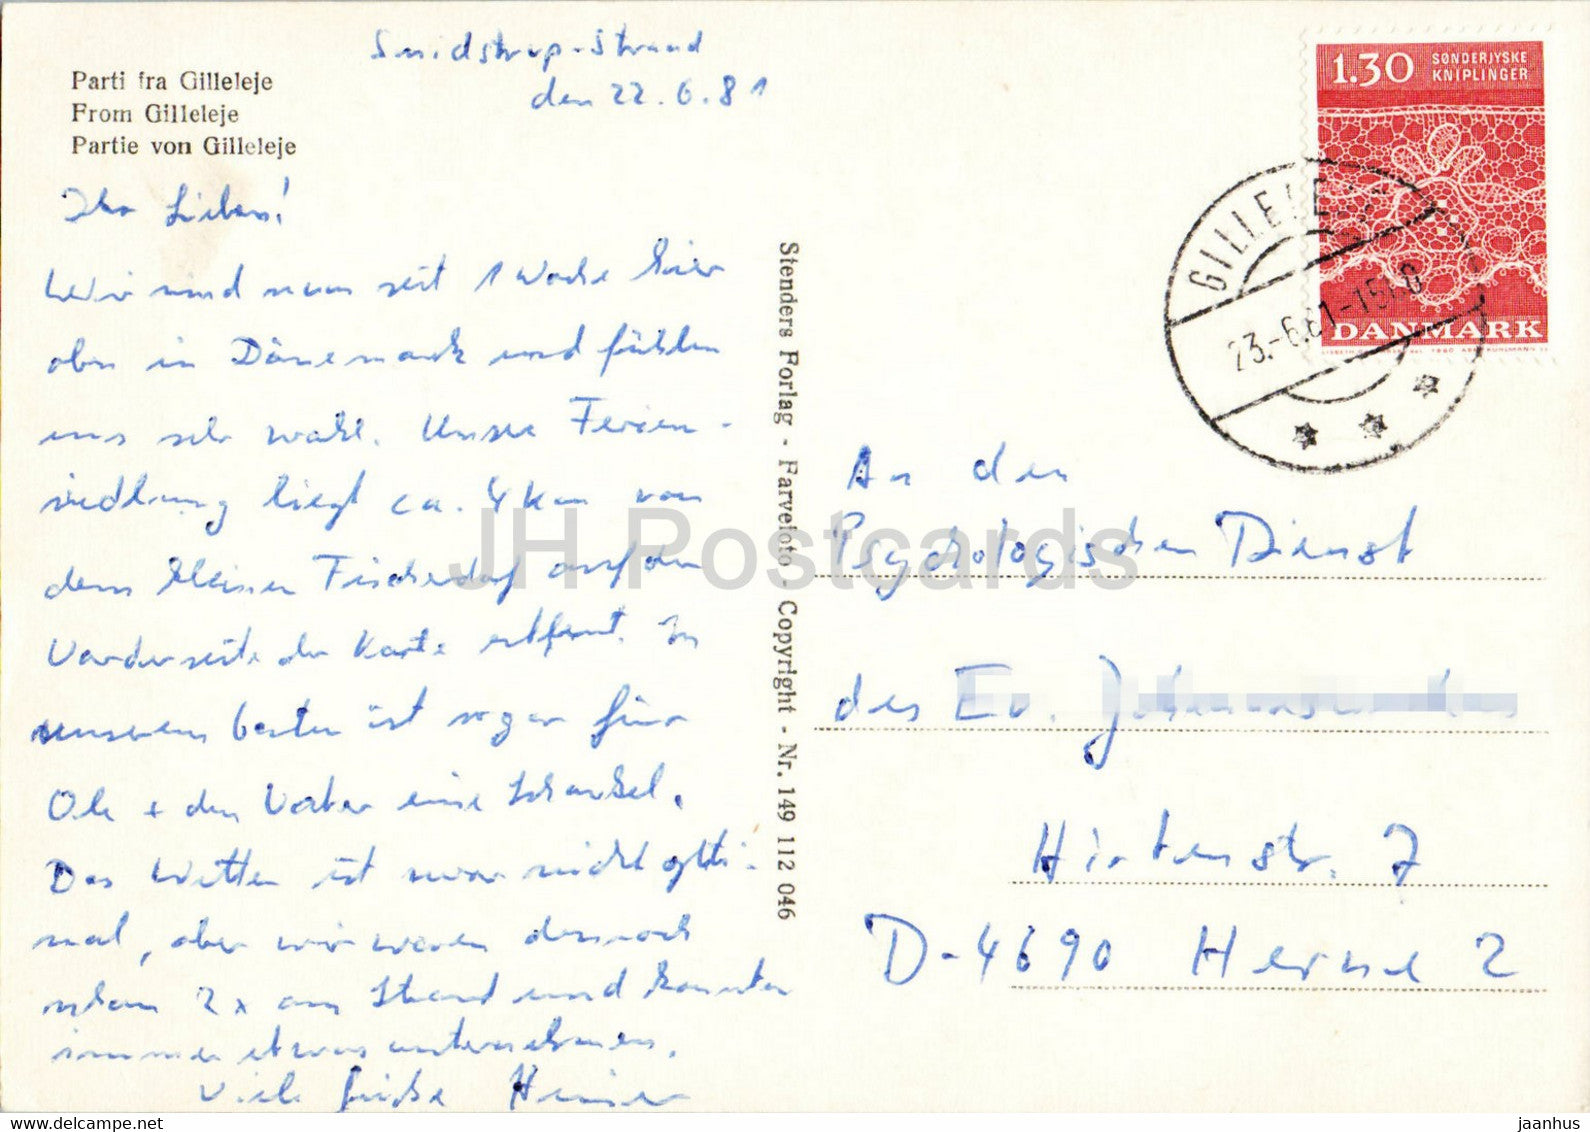 Smidstrup-Strand
den 22.6.81
Parti fra Gilleleje
From Gilleleje
Partie von Gilleleje
Ihr Lieben!
Wir sind nun seit 1 Woche hier
oben in Dänemark und fühlen
uns sehr wohl. Unsere Ferien-
siedlung liegt ca. 4 km von
dem kleinen Fischerdorf auf der
Vorderseite der Karte entfernt. In
unserem Garten ist sogar für
Ole + den Vater eine Schaukel.
Das Wetter ist zwar nicht opti-
mal, aber wir waren dennoch
schon 2x am Strand und konnten
immer etwas unternehmen.
Viele Grüße Heiner
Stenders Forlag - Farvefoto - Copyright - Nr. 149 112 046
1.30 SØNDERJYSKE
KNIPLINGER
DANMARK
GILLELEJE
23.-6.81-15
An den
Psychologischen Dienst
des Ev.
Hirtenstr. 7
D-4690 Herne 2
JH Postcards
HipPostcard.com
jaanhus